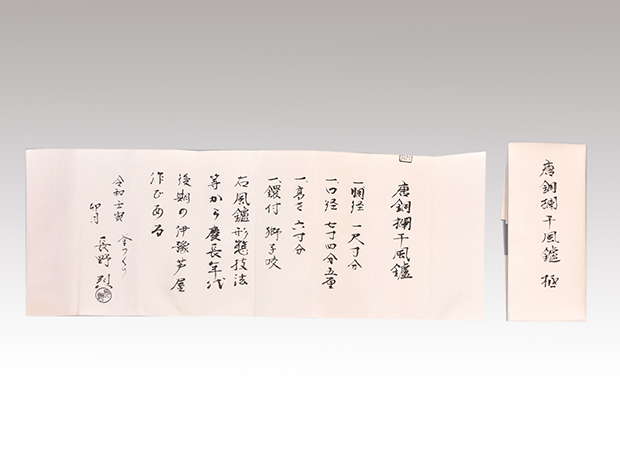 唐銅欄干風鑪
一胴径 一尺寸分
一口径 七寸四分五重
一高さ 六寸分
一鐶付 獅子咬
右風鑪形態技法
等から慶長年代
後期の伊豫芦屋
作である
令和 寅 釜つくり
卯月 長野 烈
唐銅欄干風鑪 極